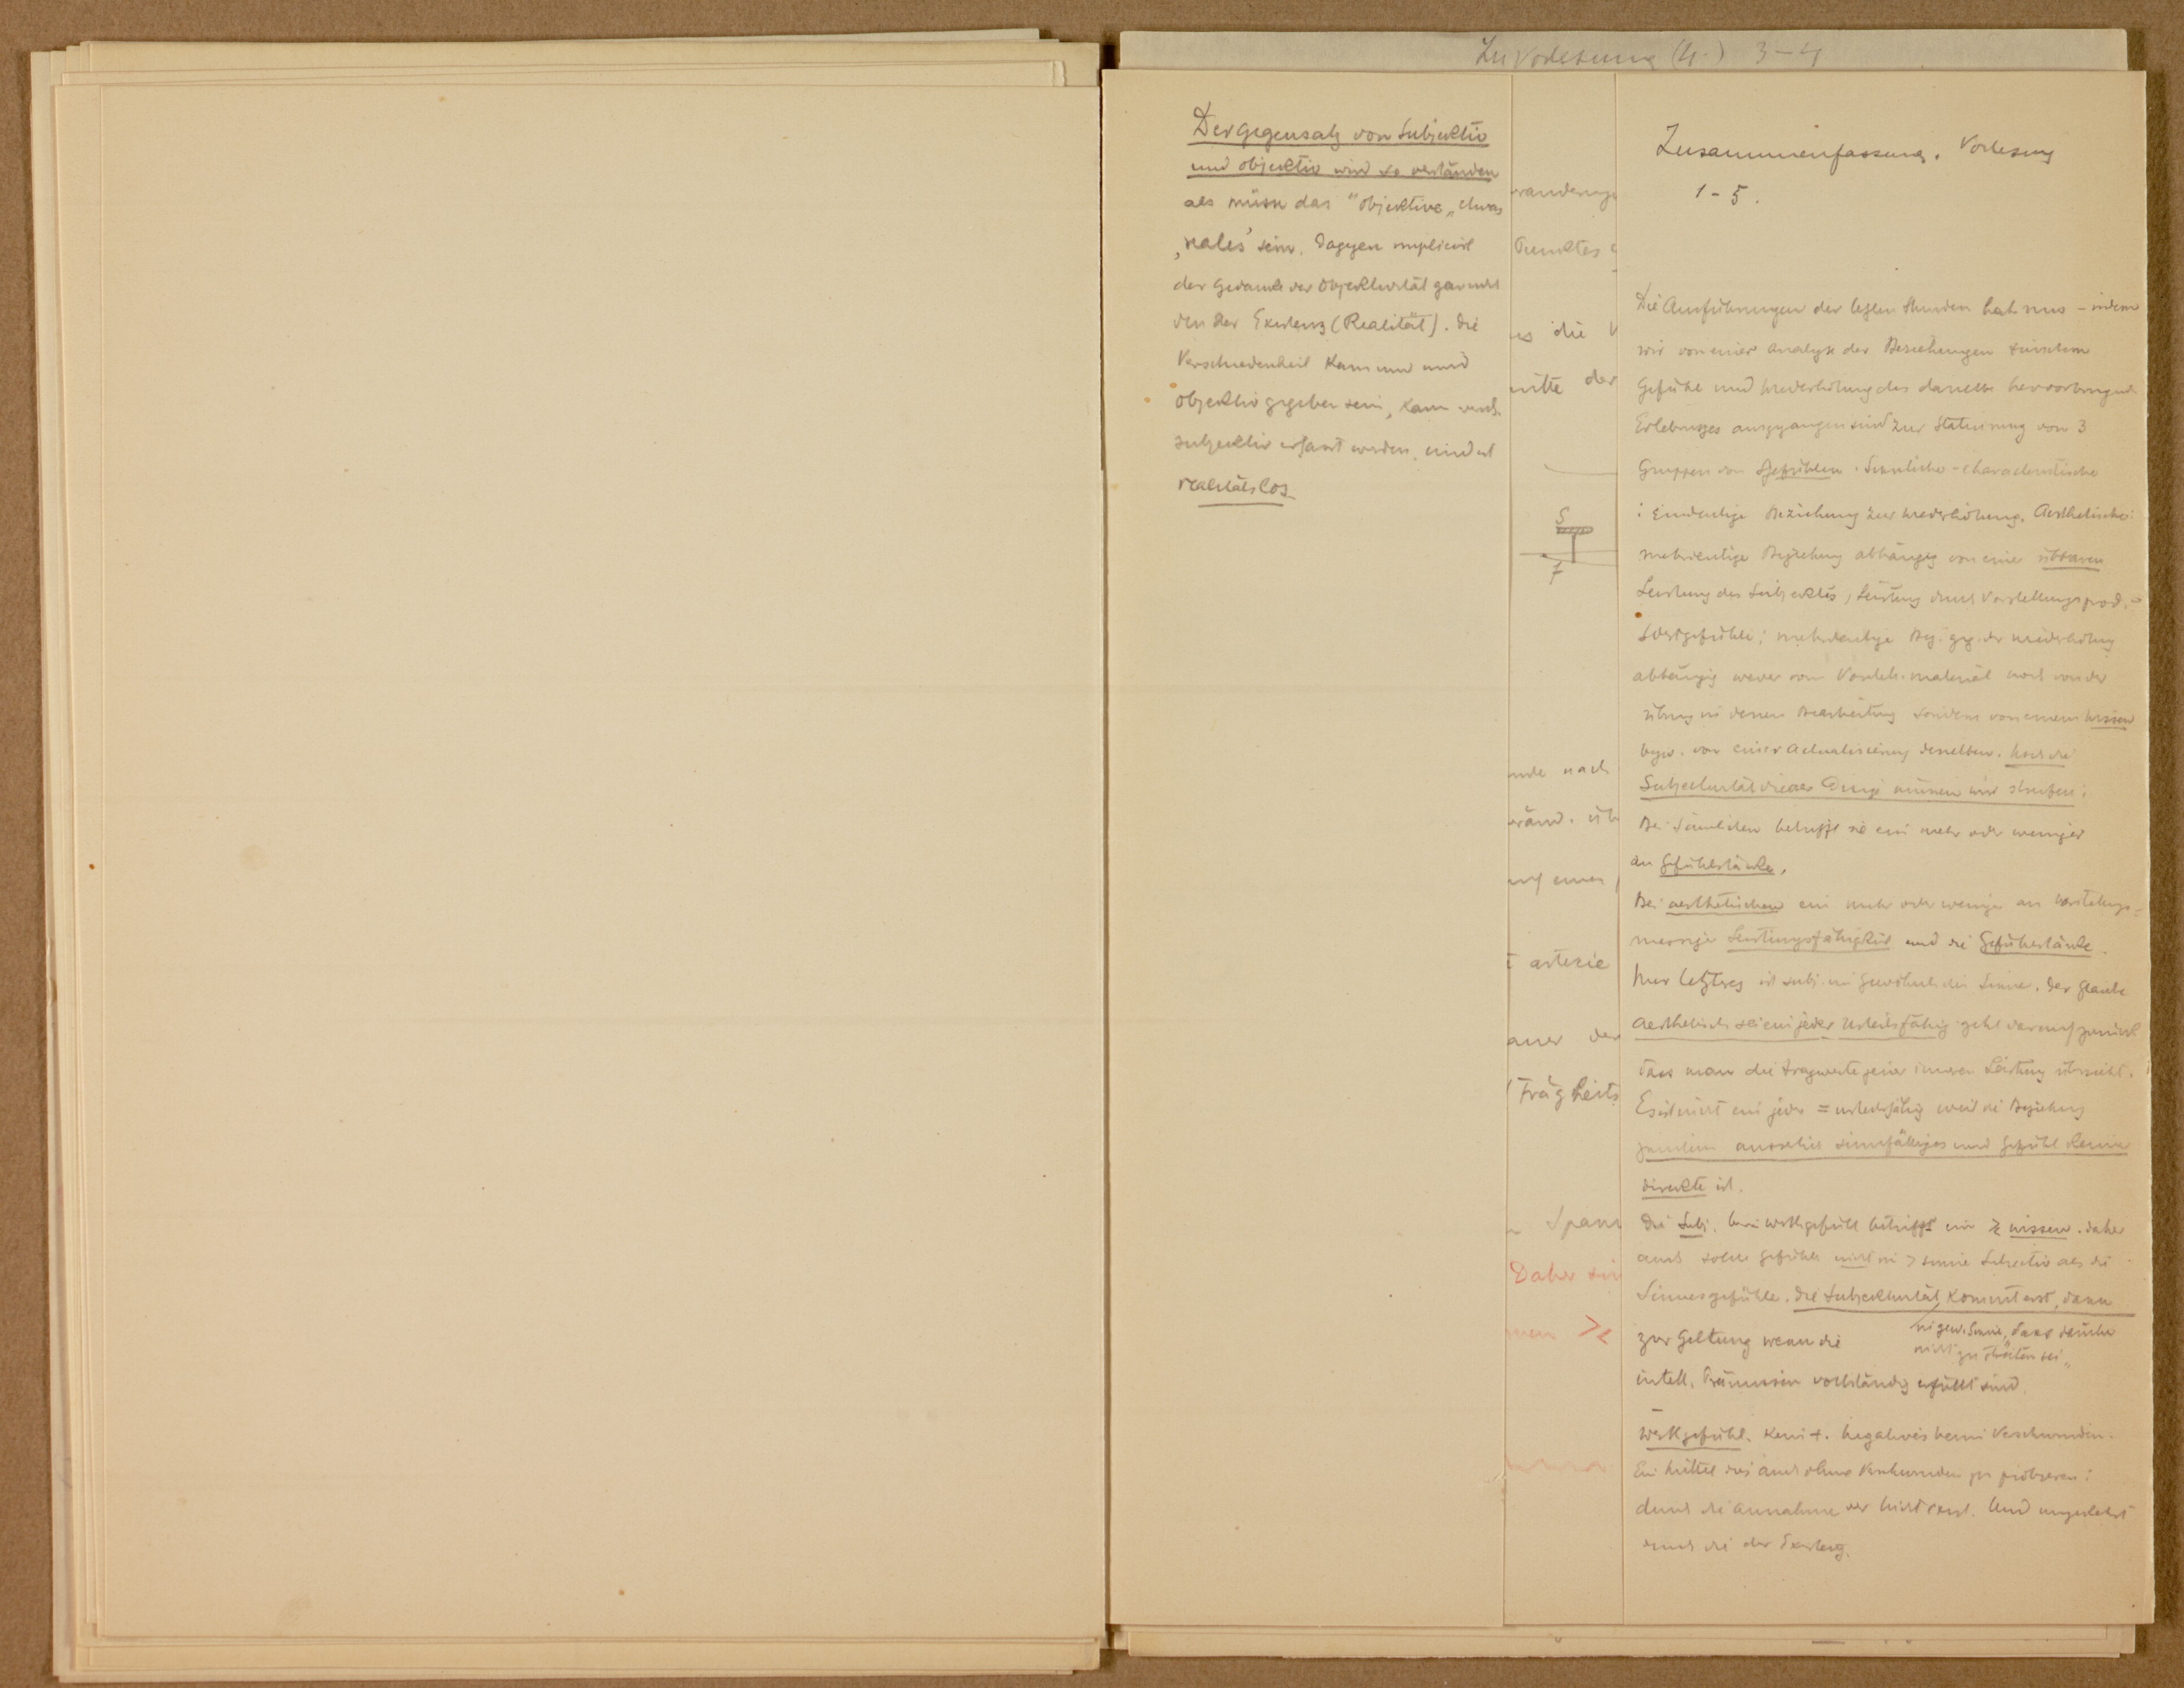 Zu Vorlesung (4.) 3-4
Der Gegensatz von Subjektiv
und objektiv wird so verstanden
als müsse das "Objektive" etwas
'reales' sein. Dagegen implicirt
der Gedanke der Objektivität gar nicht
den der Existenz (Realität). Die
Verschiedenheit kann nur
objektiv gegeben sein, kann
subjektiv erfasst werden, und ist
realitätslos
Punktes
die
mitte der
S
F
nach
einer
arterie
der
Trägheits
Span
Daher sin
men ><
Zusammenfassung. Vorlesung
1-5.
Die Ausführungen der letzten Stunden hat uns – indem
wir von einer Analyse der Beziehungen zwischen
Gefühl und Wiederholung des dasselbe hervorbringend
Erlebnisses ausgegangen sind zur Statuirung von 3
Gruppen von Gefühlen. Sinnliche - characteristische
: Eindeutige Beziehung zur Wiederholung. Aesthetische:
mehrdeutige Beziehung abhängig von einer übbaren
Leistung des Subjektes, Leistung durch Vorstellungsprod. -
Wertgefühle; mehrdeutige Bez. geg. der Wiederholung
abhängig weder vom Vorstell.material noch von der
Übung in dessen Bearbeitung sondern von einem Wissen
bzw. von einer Actualisierung desselben. Auch die
Subjektivität dieser Dinge müssen wir streifen.
Bei Sinnlichen betrifft sie ein mehr oder weniger
an Gefühlstärke.
Bei aesthetischen ein mehr oder weniger an Vorstellungs-
massiger Leistungsfähigkeit und die Gefühlstärke.
Nur letzteres ist subj. im gewöhnlichen Sinne. Der Glaube
Aesthetisch sei ein jeder urteilsfähig geht darauf zurück
dass man die Tragweite jener inneren Leistung übersieht.
Es ist nicht ein jeder = urteilsfähig weil die Beziehung
zwischen sinnfälliges und Gefühl keine
direkte ist.
Die Subj. beim Wertgefühl betrifft ein ≷ Wissen. Daher
auch solche Gefühle nicht in > Sinne Subjectiv als die
Sinnesgefühle. Die Subjektivität kommt erst, dann
im gew. Sinne, "dass darüber
nicht zu streiten sei"
zur Geltung wenn die
intell. Prämissen vollständig erfüllt sind.
Wertgefühl. Kein +. Negatives beim Verschwinden.
Ein Mittel dies auch ohne Verschwinden zu probieren:
durch die Annahme der Nichtexist. Und umgekehrt
durch die der Existenz.